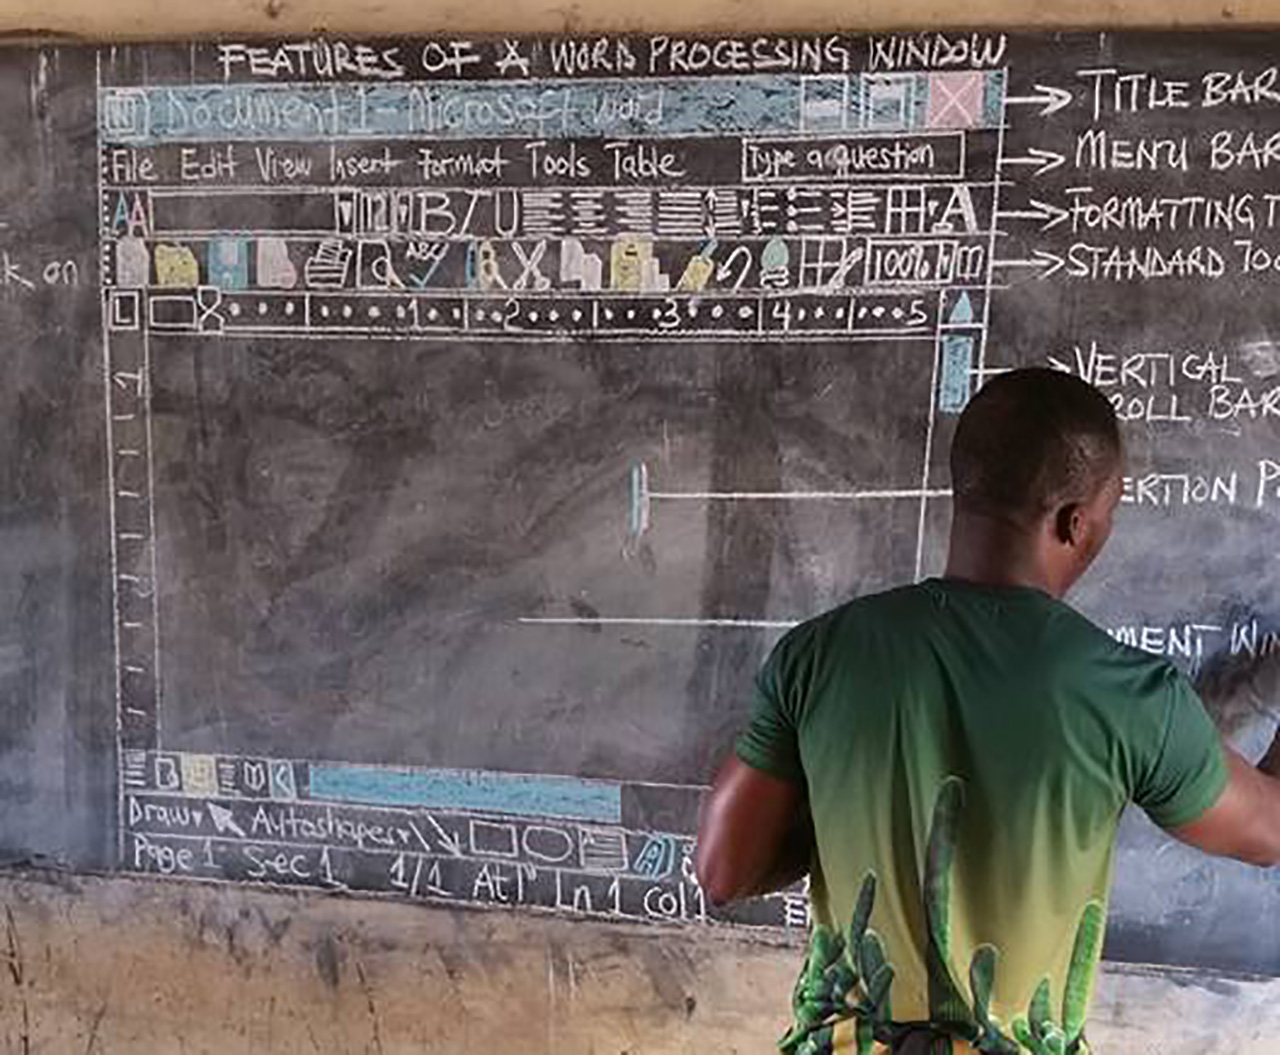 FEATURES OF A WORD PROCESSING WINDOW
W Document 1 - Microsoft Word
TITLE BAR
File Edit View Insert Format Tools Table Type a question
MENU BAR
AA B I U A
FORMATTING T
ABC 100%
STANDARD TOO
k on
L 1 2 3 4 5
1
VERTICAL
ROLL BAR
ERTION P
MENT WIN
Draw Autoshapes
Page 1 Sec 1 1/1 At 1" Ln 1 Col 1